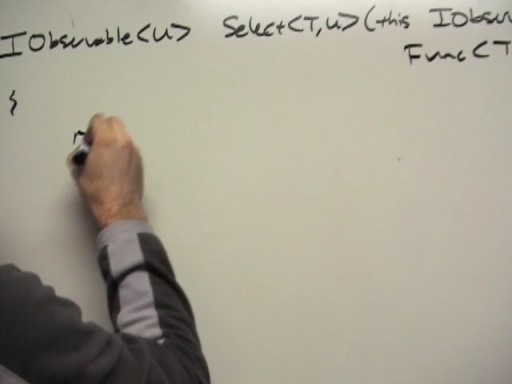 IObservable<U> Select<T,U>(this IObser
Func<T
{